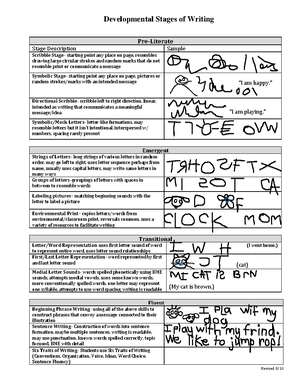 Developmental Stages of Writing
Pre-Literate
Stage Description Sample
Scribble Stage - starting point any place on page, resembles
drawing large circular strokes and random marks that do not
resemble print or communicate a message
Symbolic Stage - starting point any place on page, pictures or
random strokes/marks with an intended message
"I am happy."
Directional Scribble - scribble left to right direction, linear,
intended as writing that communicates a meaningful
message/idea
"I am playing."
Symbolic/Mock Letters - letter-like formations, may
resemble letters but it isn't intentional, interspersed w/
numbers, spacing rarely present
Emergent
Strings of Letters - long strings of various letters in random
order, may go left to right, uses letter sequence perhaps from
name, usually uses capital letters, may write same letters in
many ways
Groups of letters - groupings of letters with spaces in
between to resemble words
MI SOT CA
Labeling pictures - matching beginning sounds with the
letter to label a picture
Environmental Print - copies letters/words from
environmental/classroom print, reversals common, uses a
variety of resources to facilitate writing
CLOCK MOM
Transitional
Letter/Word Representation - uses first letter sound of word
to represent entire word, uses letter sound relationships
I W H
(I went home.)
First/Last Letter Representation - word represented by first
and last letter sound
(cat)
Medial Letter Sounds - words spelled phonetically using BME
sounds, attempts medial vowels, uses some known words,
more conventionally spelled words, one letter may represent
one syllable, attempts to use word spacing, writing is readable
MI CAT IS BRN
(My cat is brown.)
Fluent
Beginning Phrase Writing - using all of the above skills to
construct phrases that convey a message connected to their
illustration
Sentence Writing - Construction of words into sentence
formation, maybe multiple sentences, writing is readable,
may use punctuation, known words spelled correctly, topic
focused, BME with detail
I play with my frind.
We like to jump rop!
Six Traits of Writing - Students use Six Traits of Writing
(Conventions, Organization, Voice, Ideas, Word Choice,
Sentence Fluency)